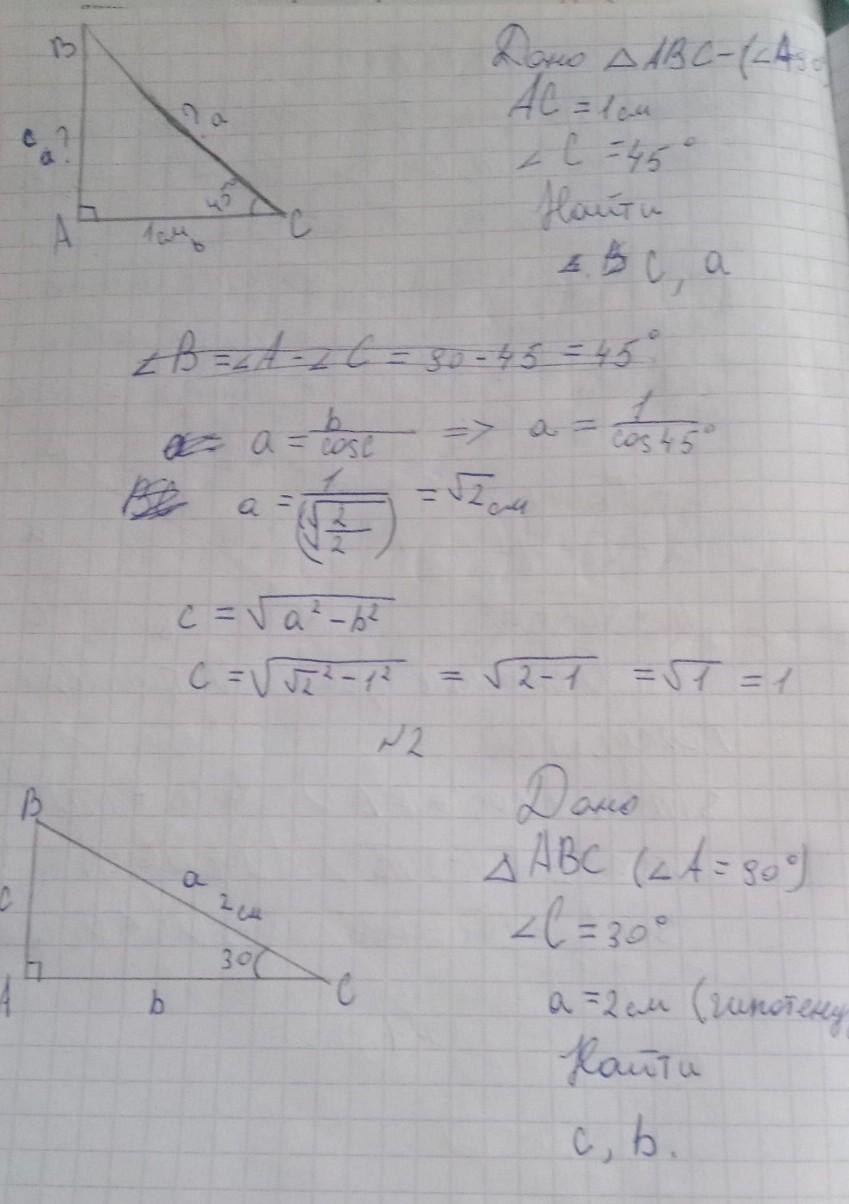 B
? a
c
a?
45
A
1см b
C
Дано △ABC-(∠A90
AC = 1см
∠C = 45°
Найти
c, a
∠B = ∠A - ∠C = 90 - 45 = 45°
a = b/cosC => a = 1/cos45°
a = 1/(√2/2) = √2 см
c = √(a² - b²)
c = √(√2² - 1²) = √(2 - 1) = √1 = 1
№2
B
c
a
2см
30
A
b
C
Дано
△ABC (∠A = 90°)
∠C = 30°
a = 2см (гипотену
Найти
c, b.